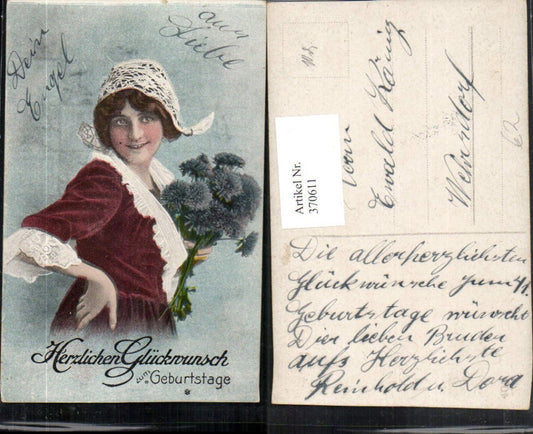 Dein
Engel
aus
Liebe
Herzlichen Glückwunsch
zum Geburtstage
Artikel Nr.
370611
Ewald König
62
Die allerherzlichsten
Glückwünsche zum
Geburtstage wünscht
Dir lieben Bruder
aufs Herzlichste
Reinhold u. Dora